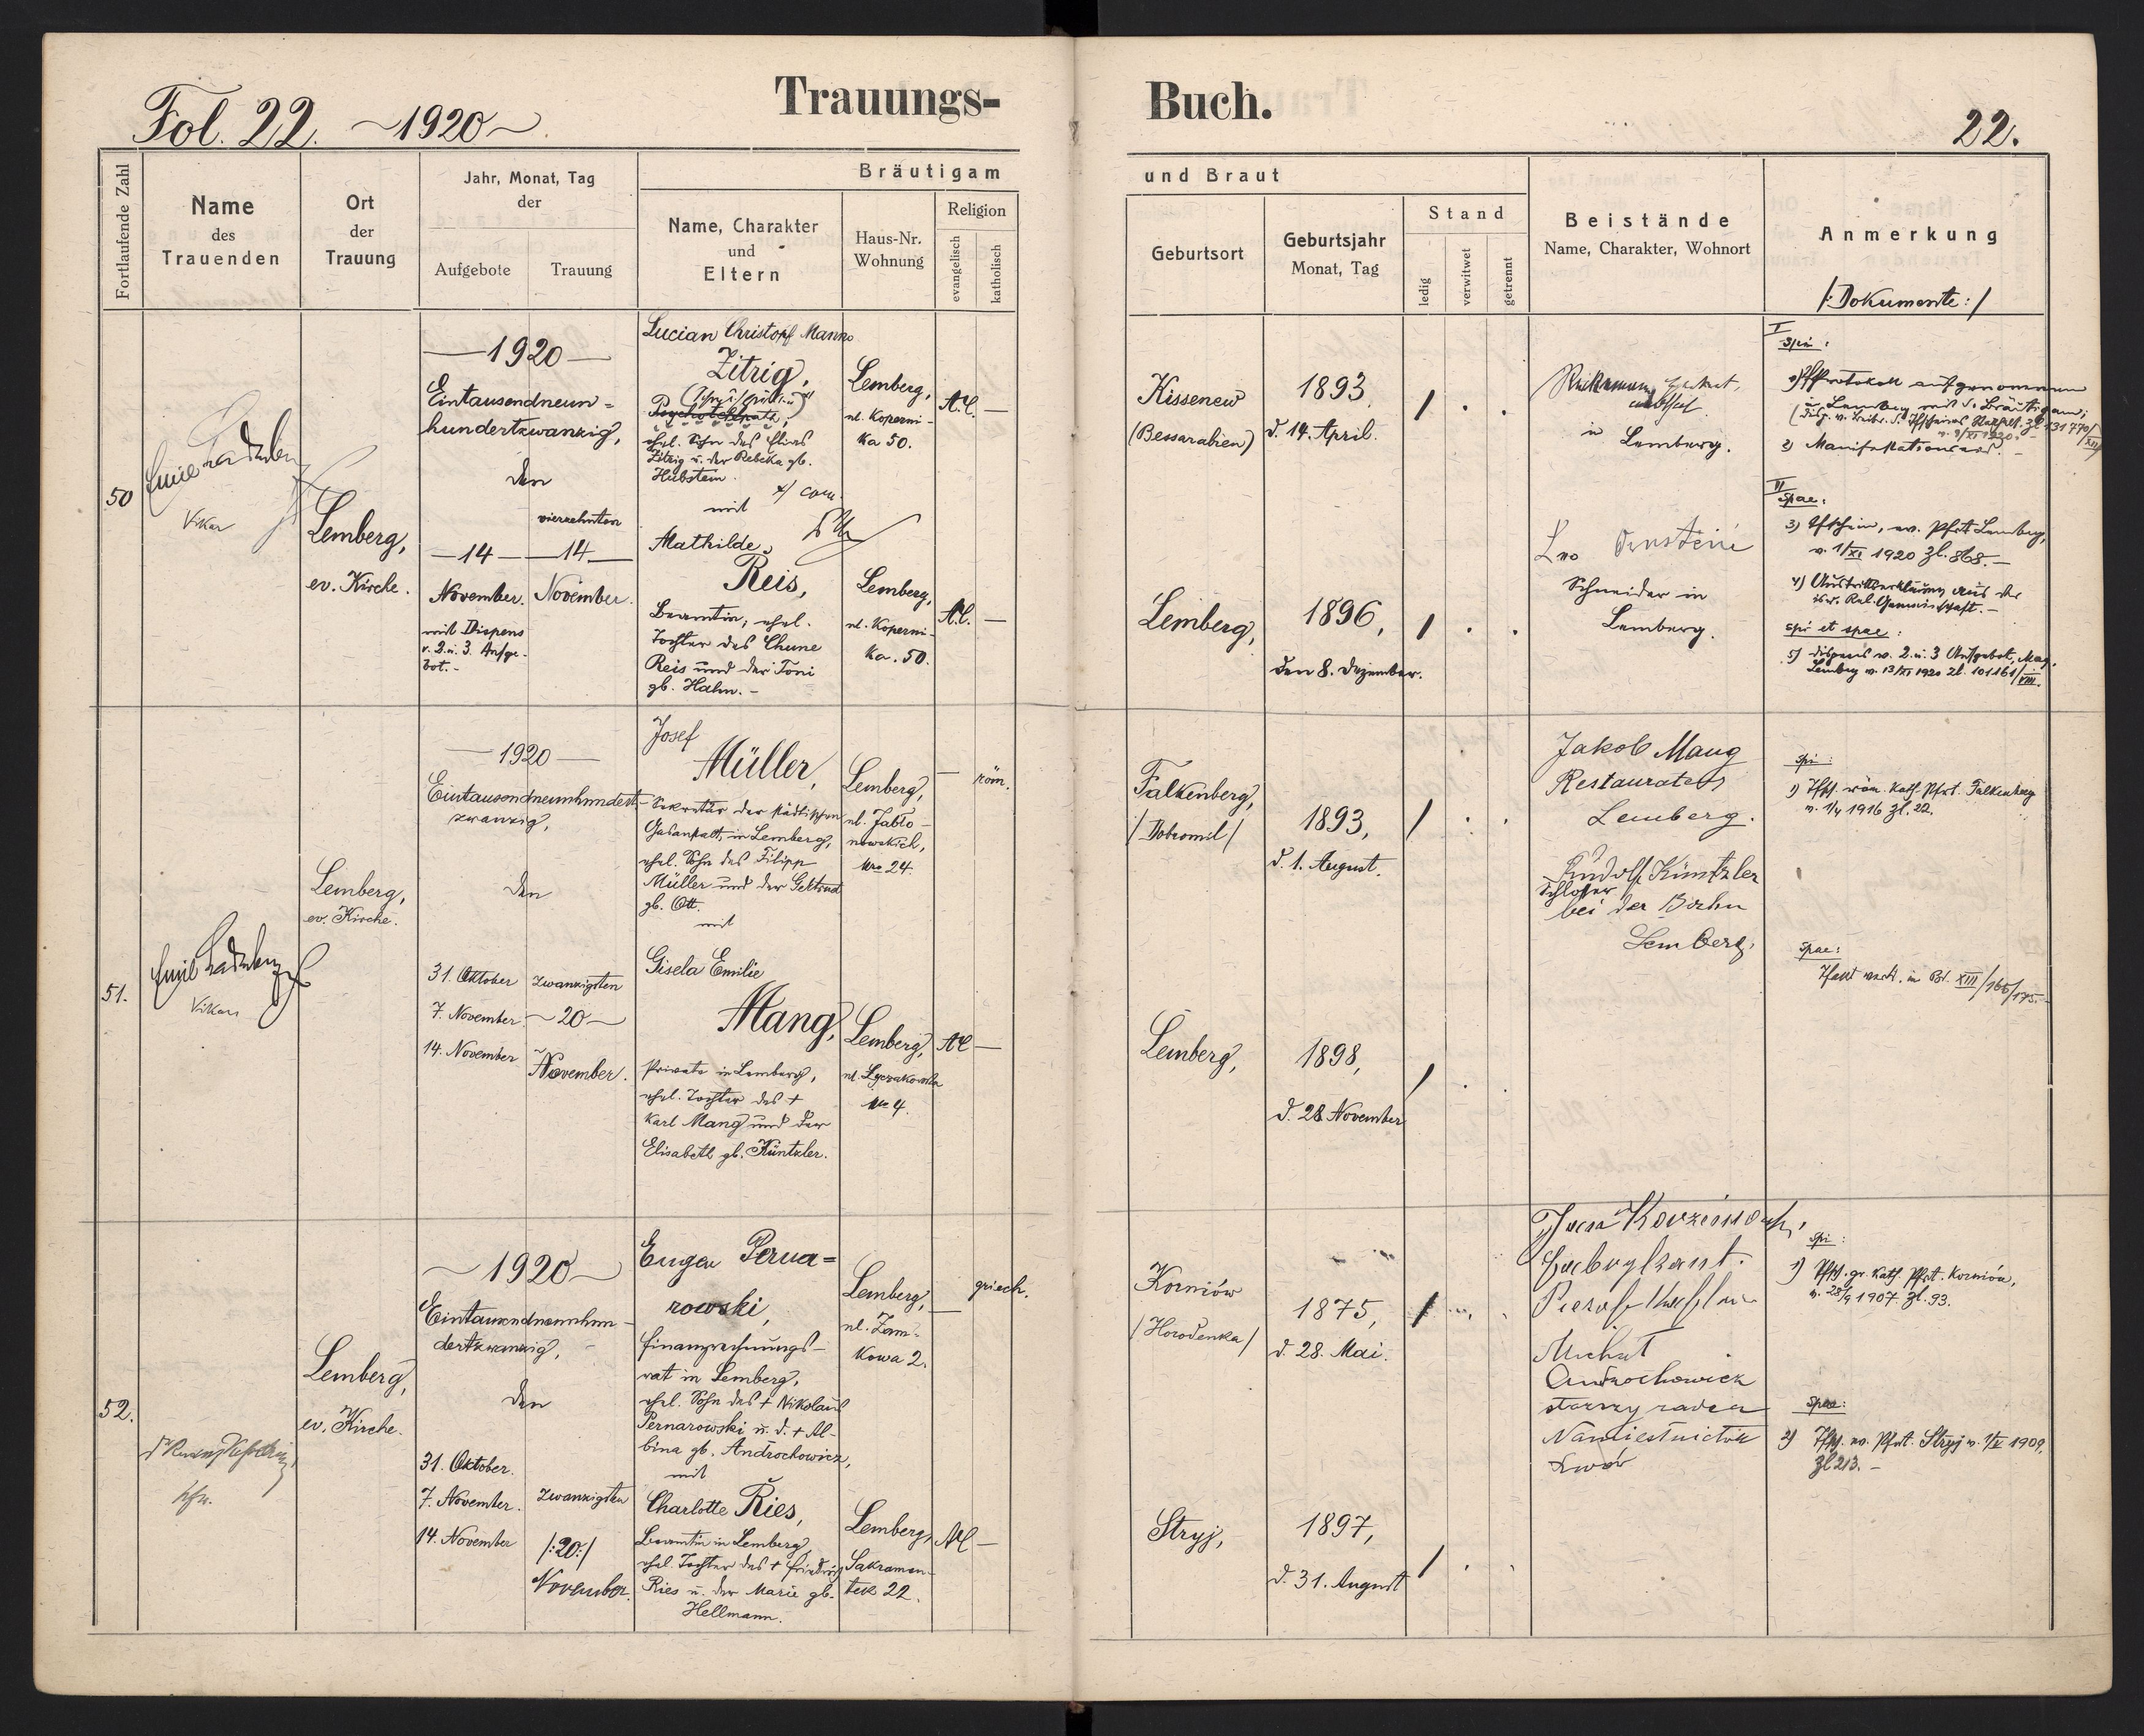 Fol. 22. ~1920~
Trauungs-
Fortlaufende Zahl
Name
des
Trauenden
Ort
der
Trauung
Jahr, Monat, Tag
der
Aufgebote
Trauung
Bräutigam
Name, Charakter
und
Eltern
Haus-Nr.
Wohnung
Religion
evangelisch
katholisch
50
Emil
Vikar
Lemberg,
ev. Kirche.
—1920—
Eintausendneun=
hundertzwanzig,
den
vierzehnten
—14— —14—
November. November.
mit Dispens
v. 2. u. 3. Aufge-
bot.-
Lucian Christoph
Zitrig,
ehel. Sohn des Elias
Zitrig u. der Rebeka gb.
mit
Mathilde
Reis,
Beamtin, ehel.
Tochter des Chune
Reis und der Toni
gb. Hahn.-
Lemberg,
ul. Koperni-
ka 50.
A.C. —
Lemberg,
ul. Koperni-
ka. 50.
A.C. —
51.
Emil
Vikar
Lemberg,
ev. Kirche.
—1920—
Eintausendneunhundert-
zwanzig,
den
31. Oktober zwanzigsten
7. November ~20~
14. November November.
Josef
Müller,
Sekretär der städtischen
Gasanstalt, in Lemberg,
ehel. Sohn des Filipp
Müller und der Gertrud
gb. Ott.
mit
Gisela Emilie
Mang,
Private in Lemberg,
ehel. Tochter des +
Karl Mang und der
Elisabeth gb. Küntzler.
Lemberg,
ul. Jabło-
nowskich,
Nro 24.
— röm.
Lemberg,
ul. Łyczakowska
Nro 4.
AC —
52.
Lemberg,
ev. Kirche.
~1920~
Eintausendneunhun-
dertzwanzig,
den
31. Oktober.
7. November. zwanzigsten
14. November /:20:/
November.
Eugen Perna=
rowski,
Finanzrechnungs-
rat in Lemberg,
ehel. Sohn des + Nikolaus
Pernarowski u. d. + Al-
bina gb. Androchowicz,
mit
Charlotte Ries,
Beamtin in Lemberg,
ehel. Tochter des + Friedrich
Ries u. der Marie gb.
Hellmann.
Lemberg,
ul. Zam-
kowa 2.
— griech.
Lemberg,
Sakramen-
tek 22.
AC —
Buch.
22.
und Braut
Geburtsort
Geburtsjahr
Monat, Tag
Stand
ledig
verwitwet
getrennt
Beistände
Name, Charakter, Wohnort
Anmerkung
/:Dokumente:/
Kissenew
(Bessarabien)
1893
d. 14. April.
in Lemberg.
I
Spi:
1) Protokoll aufgenommen
in Lemberg mit d. Bräutigam;
2)
Lemberg,
1896,
den 8. Dezember.
Schneider in
Lemberg.
II
Spae:
3) Tfschein, ev. Pfrt Lemberg,
v. 1/XI 1920 Zl. 868.—
4) Austrittserklärung aus der
isr. Rel. Gemeinschaft.-
Spi et spae:
5) Dispens v. 2. u. 3 Aufgebot, Mag.
Lemberg v. 13/XI 1920 Zl. 101161/VIII.
Falkenberg,
/Dobromil/
1893,
d. 1. August.
Jakob Mang
Restaurateur
Lemberg.
Rudolf Küntzler
Schlosser
bei der Bahn
Lemberg.
Spi:
1) Tfschl. röm. kath. Pfrt. Falkenberg
v. 1/4 1916 Zl. 22.
Spae:
Lemberg,
1898,
d. 28. November
Korniów
/Horodenka/
1875,
d. 28. Mai.
Michał
Androchowicz
starszy radca
Namiestnictwa
Lwów
Spi:
1) Tfschl. gr. kath. Pfrt. Korniów,
v. 28/9 1907. Zl. 93.
Spae:
2) Tfschl. ev. Pfrt. Stryj v. 1/V 1909,
Zl 213.—
Stryj,
1897,
d. 31. August